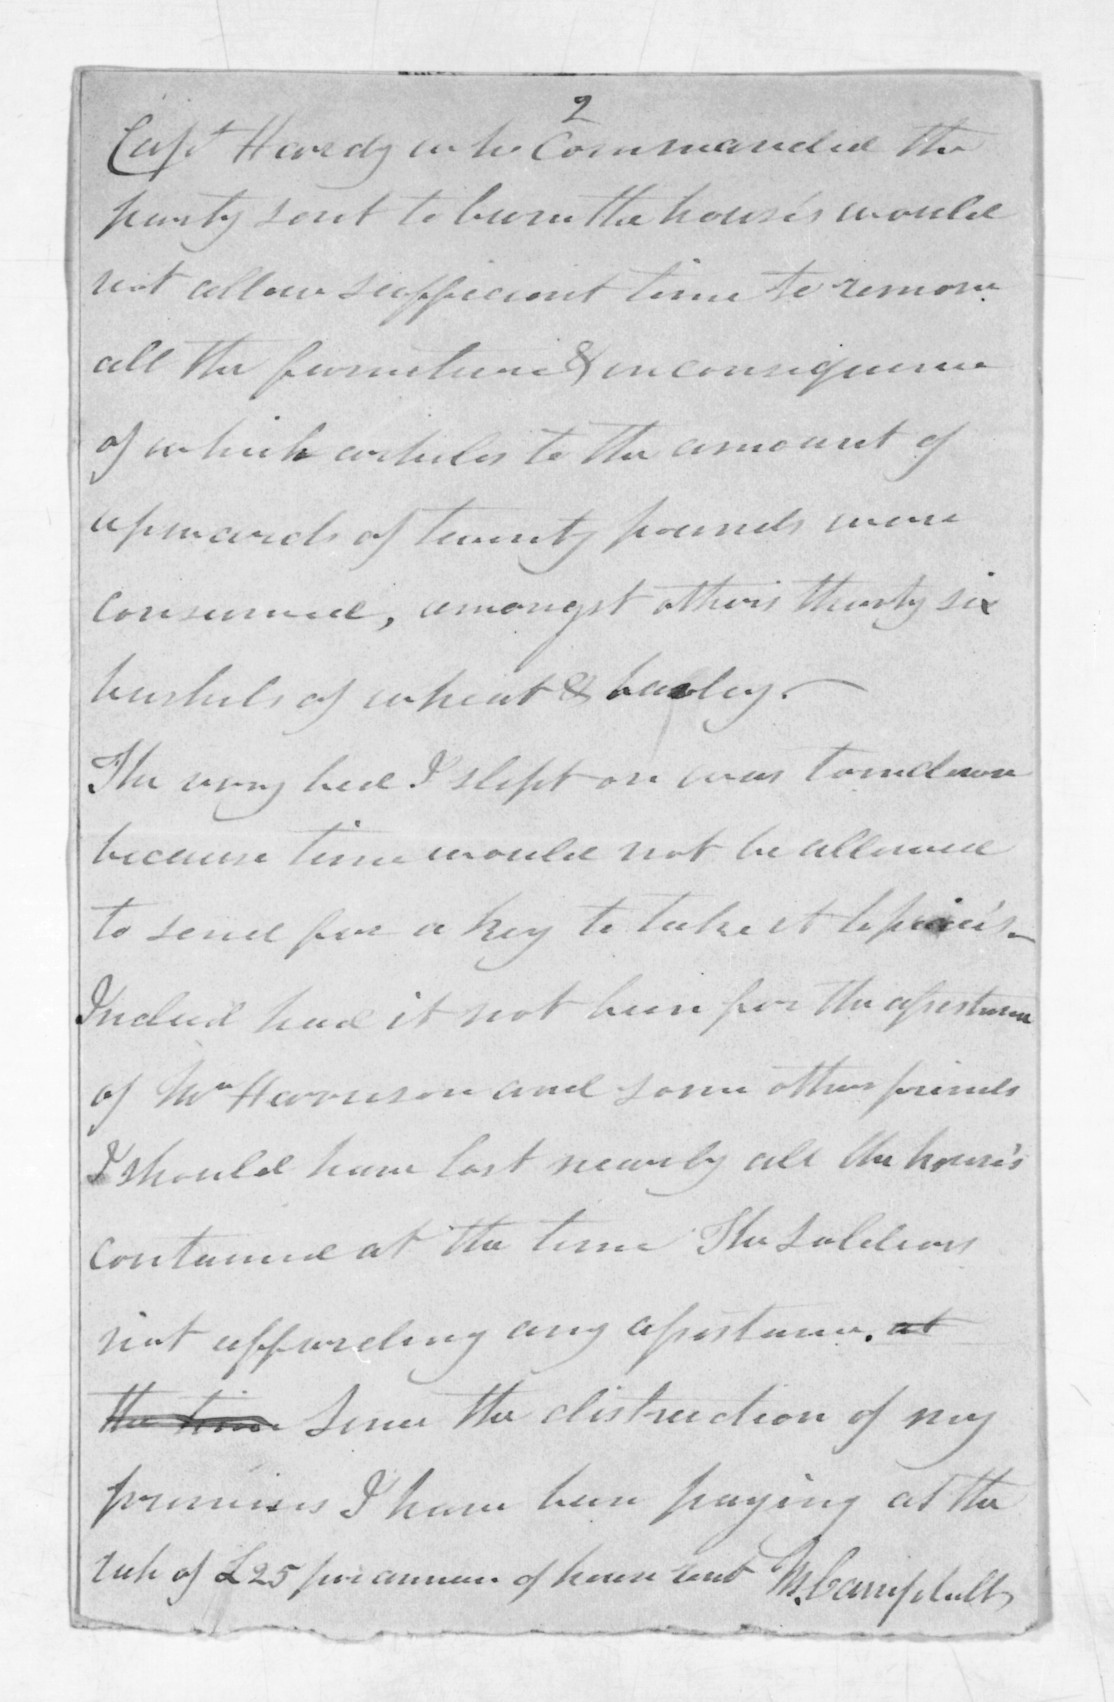 2
Capt Haredy who Commanded the
party sent to burn the house's would
not allow sufficient time to remove
all the furniture & in consequence
of which articles to the amount of
upwards of twenty pounds were
consumed, amongst others thirty six
bushels of wheat & barley.
The very bed I slept on was torn down
because time would not be allowed
to send for a key to take it to pieces.
Indeed had it not been for the assistance
of Mr Harrison and some other friends
I should have lost nearly all the house's
contained at the time The Soldiers
not affording any assistance. at
the time Since the distruction of my
premises I have been paying at the
rate of £25 per annum of house rent M. Campbell